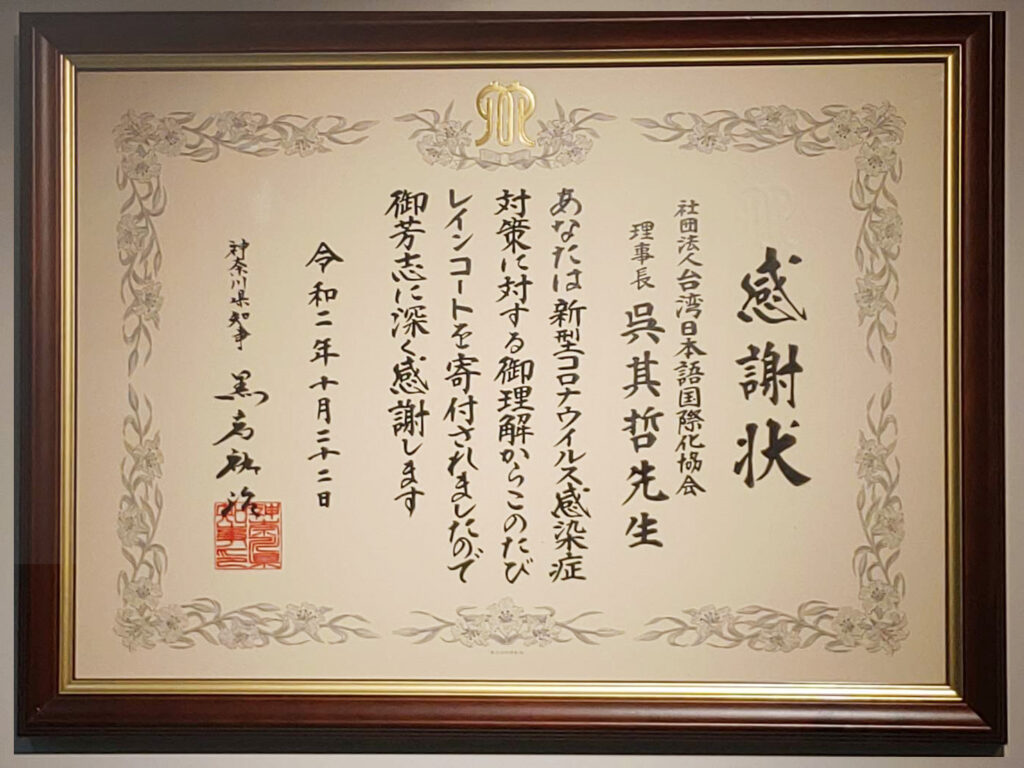 感謝状
社団法人台湾日本語国際化協会
理事長 呉其哲先生
あなたは新型コロナウイルス感染症
対策に対する御理解からこのたび
レインコートを寄付されましたので
御芳志に深く感謝します
令和二年十月二十二日
神奈川県知事 黒岩祐治